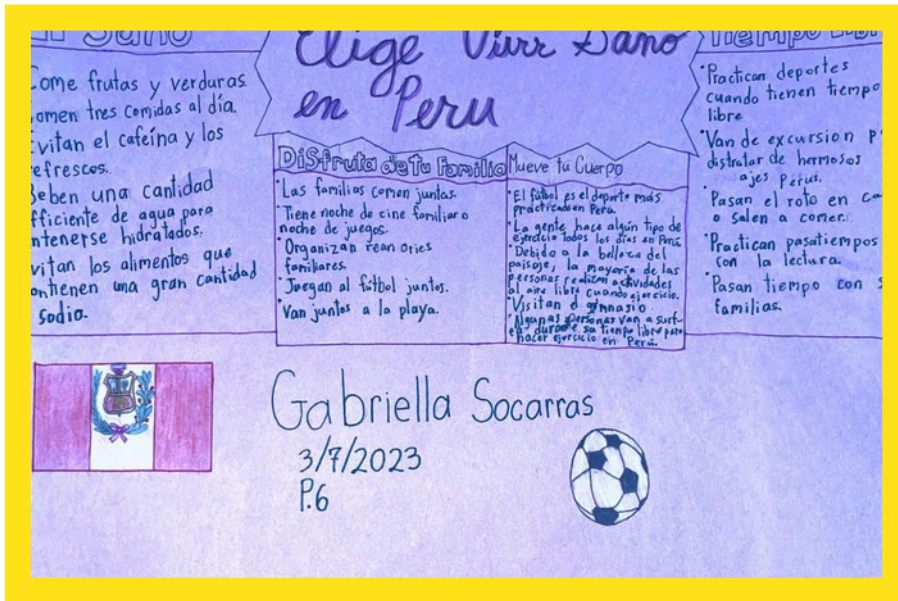 Sano
Come frutas y verduras.
omen tres comidas al día.
Evitan el cafeína y los
efrescos.
Beben una cantidad
fficiente de agua para
ntenerse hidratados.
vitan los alimentos que
ontienen una gran cantidad
sodio.
Elige Vivir Sano
en Peru
Disfruta de Tu Familia
•Las familias comen juntas.
•Tiene noche de cine familiar o
noche de juegos.
•Organizan rean ories
familiares.
•Juegan al fútbol juntos.
Van juntos a la playa.
Mueve tu Cuerpo
•El fútbol es el deporte más
practicado en Perú.
•La gente hace algún tipo de
ejercicio todos los días en Perú
•Debido a la belleza del
paisaje, la mayoría de las
personas realizan actividades
al aire libre cuando ejercicio.
•Visitan el gimnasio.
•Algunas personas van a surf-
ear durante su tiempo libre para
hacer ejercicio en Perú.
Tiempo Lib
•Practican deportes
cuando tienen tiempo
libre.
•Van de excursion p
distratar de hermosos
ajes Perus.
Pasan el roto en ca
o salen a comer.
•Practican pasatiempos
con la lectura.
•Pasan tiempo con s
familias.
Gabriella Socarras
3/7/2023
P.6